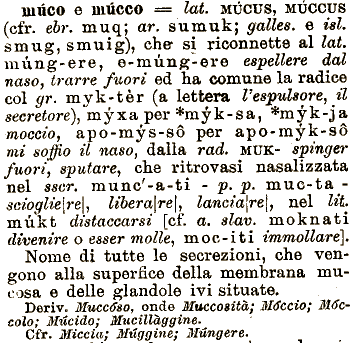 múco e múcco = lat. MÚCUS, MÚCCUS
(cfr. ebr. muq; ar. sumuk; galles. e isl.
smug, smuig), che si riconnette al lat.
múng-ere, e-múng-ere espellere dal
naso, trarre fuori ed ha comune la radice
col gr. myk-tèr (a lettera l'espulsore, il
secretore), mýxa per *mýk-sa, *mýk-ja
moccio, apo-mýs-sô per apo-mýk-sô
mi soffio il naso, dalla rad. MUK- spinger
fuori, sputare, che ritrovasi nasalizzata
nel sscr. munc'-a-ti - p. p. muc-ta -
scioglie|re|, libera|re|, lancia|re|, nel lit.
múkt distaccarsi [cf. a. slav. moknati
divenire o esser molle, moc-iti immollare].
Nome di tutte le secrezioni, che ven-
gono alla superfice della membrana mu-
cosa e delle glandole ivi situate.
Deriv. Muccóso, onde Muccosità; Móccio; Móc-
colo; Múcido; Mucillàggine.
Cfr. Miccia; Múggine; Múngere.